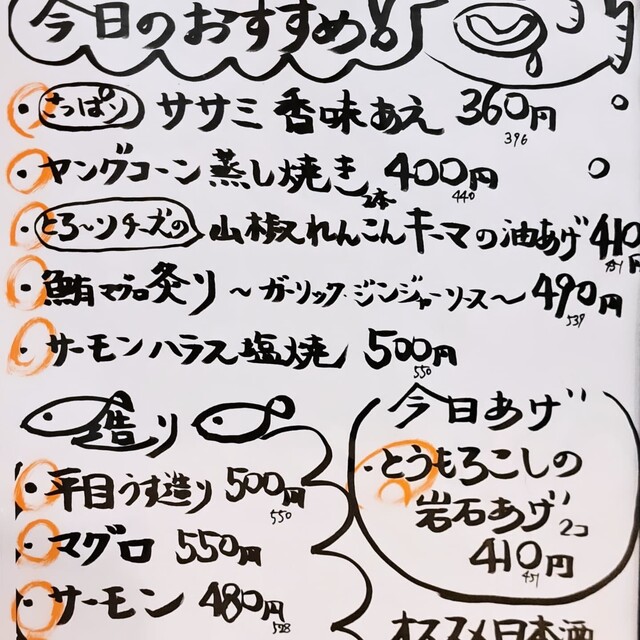 今日のおすすめ!
・さっぱりササミ香味あえ 360円
396
・ヤングコーン蒸し焼き 2本 400円
440
・とろ~りチーズの山椒れんこんキーマの油あげ 410円
451
・鮪マグロ炙り ~ガーリックジンジャーソース~ 490円
539
・サーモンハラス塩焼 500円
550
造り
・平目うす造り 500円
550
・マグロ 550円
・サーモン 480円
528
今日あげ
・とうもろこしの
岩石あげ 2コ
410円
451
オススメ日本酒